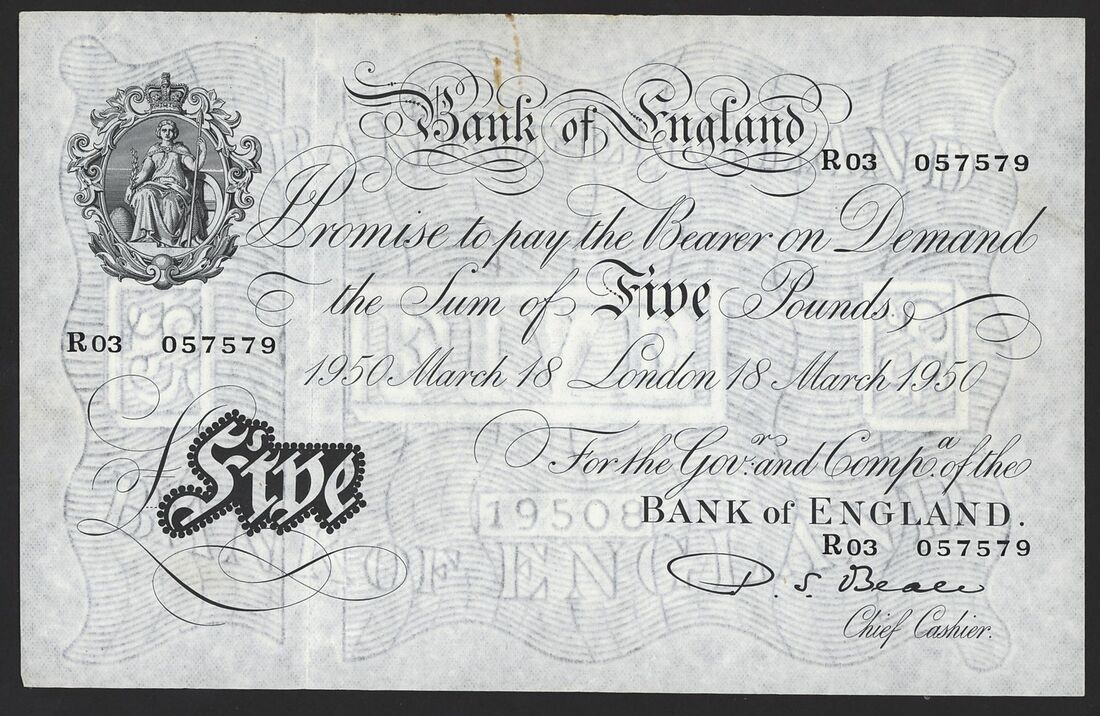 Bank of England
R03 057579
I Promise to pay the Bearer on Demand
the Sum of Five Pounds
R03 057579
1950 March 18 London 18 March 1950
£Five
For the Gov.r and Comp.a of the
BANK of ENGLAND.
R03 057579
P. S. Beale
Chief Cashier.
BANK OF ENGLAND
FIVE
19508
BANK OF ENGLAND